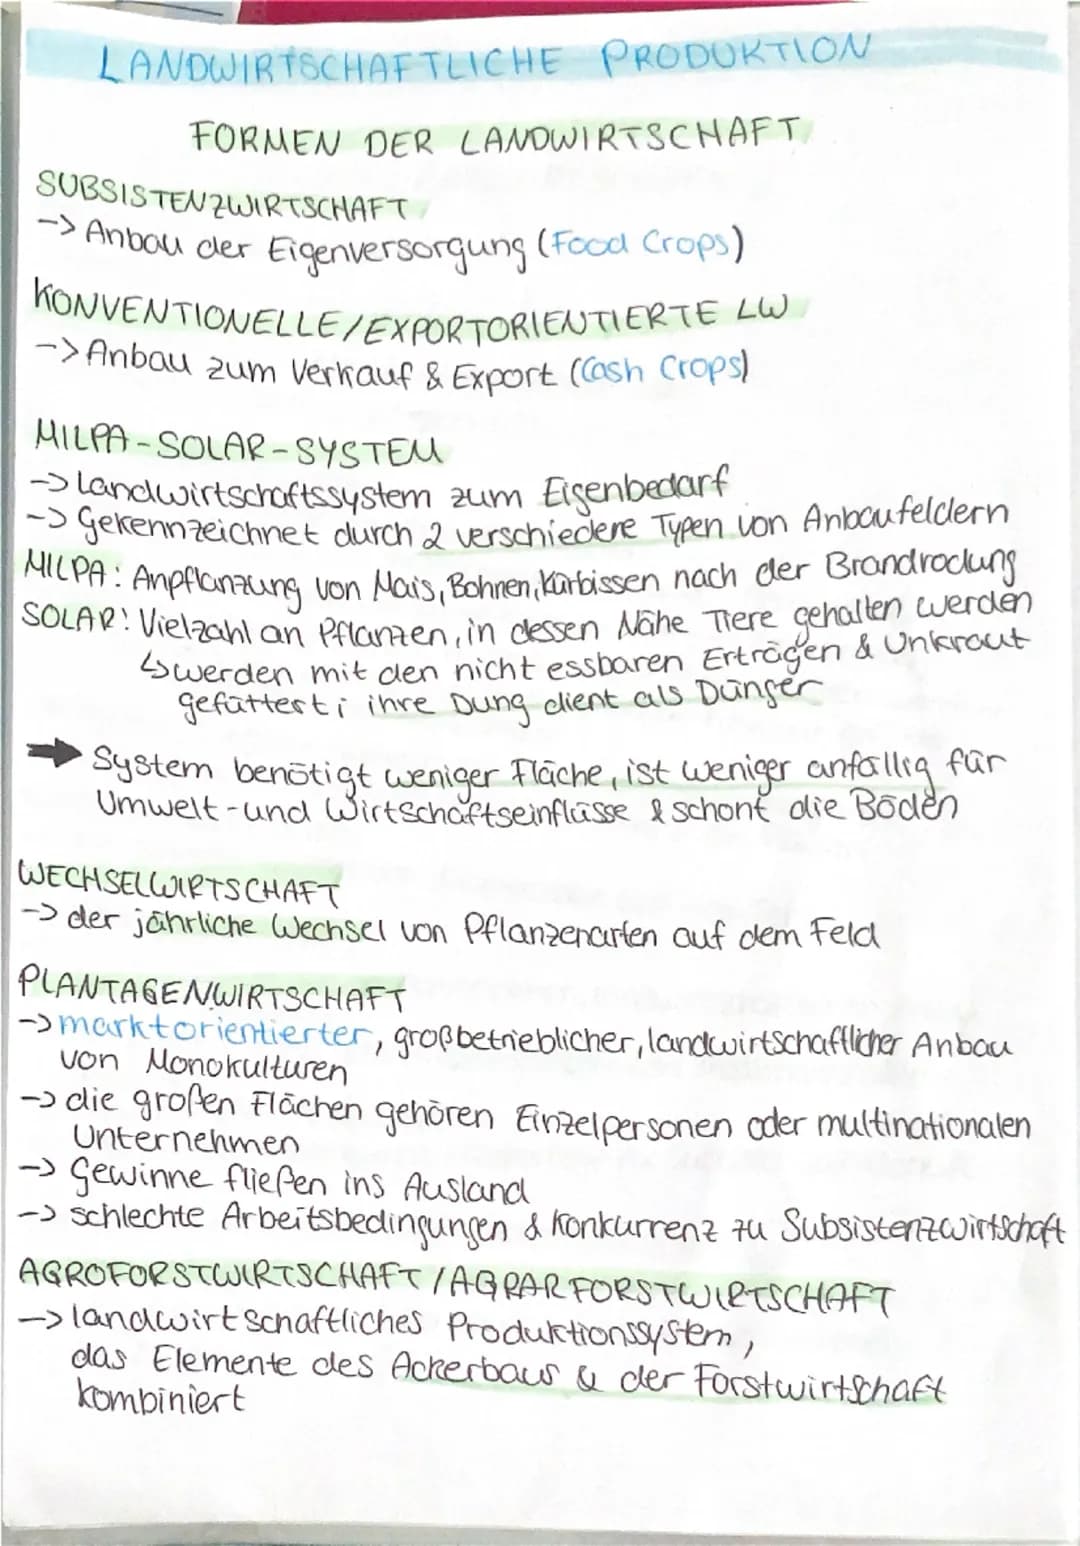 LANDWIRTSCHAFTLICHE PRODUKTION
FORMEN DER LANDWIRTSCHAFT
SUBSISTENZWIRTSCHAFT
-> Anbau der Eigenversorgung (Food Crops)
KONVENTIONELLE/EXPORTORIENTIERTE LW
-> Anbau zum Verkauf & Export (Cash Crops)
MILPA-SOLAR-SYSTEM
-> Landwirtschaftssystem zum Eigenbedarf
-> Gekennzeichnet durch 2 verschiedene Typen von Anbaufeldern
MILPA: Anpflanzung von Mais, Bohnen, Kürbissen nach der Brandrodung
SOLAR: Vielzahl an Pflanzen, in dessen Nähe Tiere gehalten werden
↳ werden mit den nicht essbaren Erträgen & Unkraut
gefüttert; ihre Dung dient als Dünger
➡ System benötigt weniger Fläche, ist weniger anfällig für
Umwelt- und Wirtschaftseinflüsse & schont die Böden
WECHSELWIRTSCHAFT
-> der jährliche Wechsel von Pflanzenarten auf dem Feld
PLANTAGENWIRTSCHAFT
-> marktorientierter, großbetrieblicher, landwirtschaftlicher Anbau
von Monokulturen
-> die großen Flächen gehören Einzelpersonen oder multinationalen
Unternehmen
-> Gewinne fließen ins Ausland
-> schlechte Arbeitsbedingungen & Konkurrenz zu Subsistenzwirtschaft
AGROFORSTWIRTSCHAFT/AGRARFORSTWIRTSCHAFT
-> landwirtschaftliches Produktionssystem,
das Elemente des Ackerbaus & der Forstwirtschaft
kombiniert